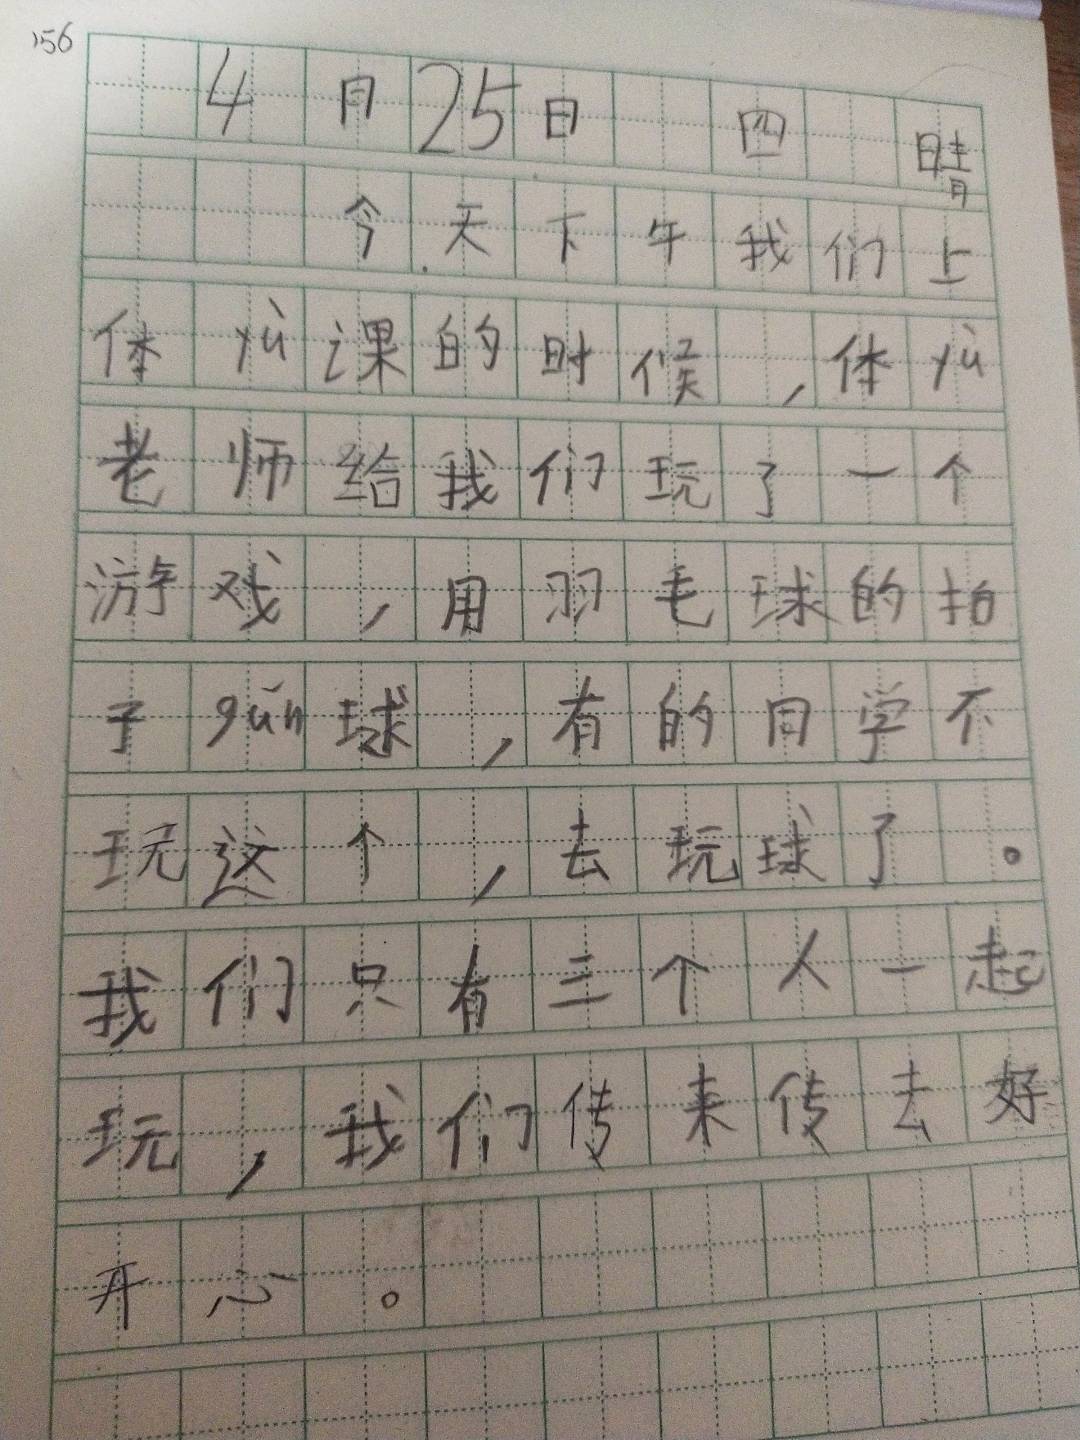 156
4月25日 四 晴
今天下午我们上
体yù课的时候,体yù
老师给我们玩了一个
游戏,用羽毛球的拍
子gǔn球,有的同学不
玩这个,去玩球了。
我们只有三个人一起
玩,我们传来传去好
开心。